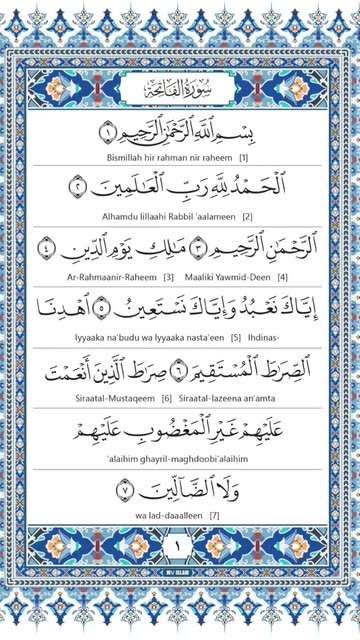 سُورَةُ الفَاتِحَةِ
بِسْمِ ٱللَّهِ ٱلرَّحْمَٰنِ ٱلرَّحِيمِ ١
Bismillah hir rahman nir raheem [1]
ٱلْحَمْدُ لِلَّهِ رَبِّ ٱلْعَٰلَمِينَ ٢
Alhamdu lillaahi Rabbil 'aalameen [2]
ٱلرَّحْمَٰنِ ٱلرَّحِيمِ ٣ مَٰلِكِ يَوْمِ ٱلدِّينِ ٤
Ar-Rahmaanir-Raheem [3] Maaliki Yawmid-Deen [4]
إِيَّاكَ نَعْبُدُ وَإِيَّاكَ نَسْتَعِينُ ٥ ٱهْدِنَا
Iyyaaka na'budu wa Iyyaaka nasta'een [5] Ihdinas-
ٱلصِّرَٰطَ ٱلْمُسْتَقِيمَ ٦ صِرَٰطَ ٱلَّذِينَ أَنْعَمْتَ
Siraatal-Mustaqeem [6] Siraatal-lazeena an'amta
عَلَيْهِمْ غَيْرِ ٱلْمَغْضُوبِ عَلَيْهِمْ
'alaihim ghayril-maghdoobi'alaihim
وَلَا ٱلضَّآلِّينَ ٧
wa lad-daaalleen [7]
١
MY ISLAM